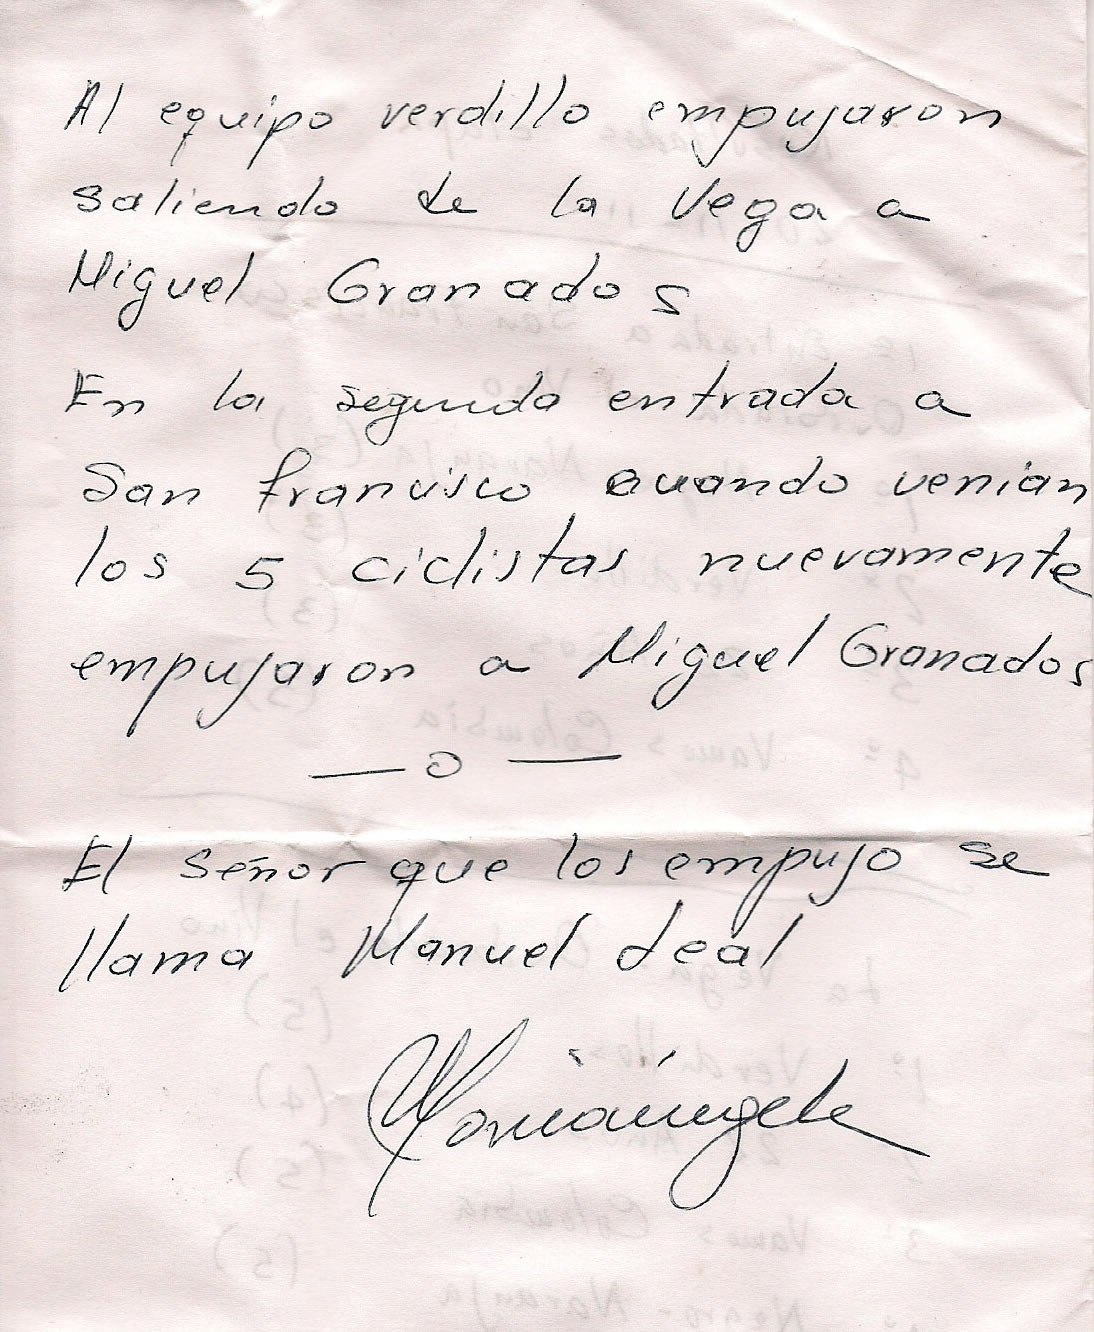 Al equipo verdillo empujaron
saliendo de la Vega a
Miguel Granados
En la segunda entrada a
San francisco cuando venian
los 5 ciclistas nuevamente
empujaron a Miguel Granados
— o —
El Señor que los empujo se
llama Manuel Leal